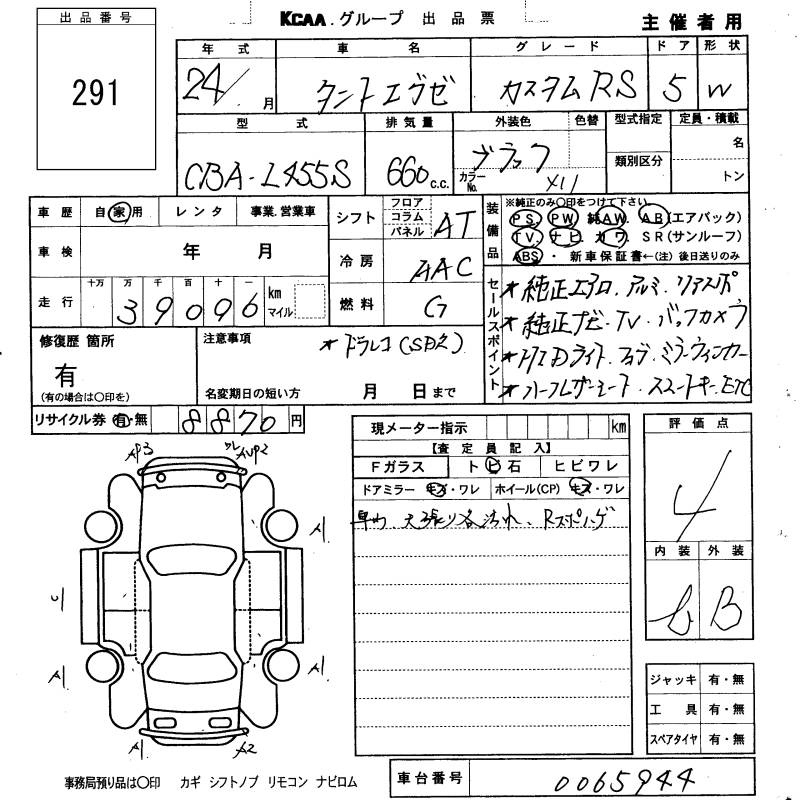 出品番号
291
KCAA.グループ 出品票
主催者用
年式 車名 グレード ドア 形状
24/ 月 タントエグゼ カスタムRS 5 W
型式 排気量 外装色 色替 型式指定 定員・積載
CBA-L455S 660 c.c. ブラック 類別区分 名
カラーNo. X11 トン
車歴 自家用 レンタ 事業.営業車
シフト フロア コラム パネル AT
装備品
※純正のみ○印をつけて下さい。
PS PW 純AW AB(エアバック)
TV ナビ カワ SR(サンルーフ)
ABS・新車保証書←(注)後日送りのみ
車検 年 月
冷房 AAC
走行 十万 万 千 百 十 一 km マイル
39096
燃料 G
セールスポイント
*純正エアロ.アルミ.リアスポ
*純正ナビ・TV・バックカメラ
*HIDライト.フォグ.ミラーウィンカー
*ハーフレザーシート.スマートキー.ETC
修復歴 箇所
有
(有の場合は○印を)
注意事項 *ドラレコ(SD欠)
名変期日の短い方 月 日まで
リサイクル券 有・無 8870 円
現メーター指示 km
【査定員記入】
Fガラス トビ石 ヒビワレ
ドアミラー キズ・ワレ ホイール(CP) キズ・ワレ
天張り 汚れ.
評価点
4
内装 外装
B
AP3
AUP2
A1
A1
A1
A1
A1
A2
ジャッキ 有・無
工具 有・無
スペアタイヤ 有・無
事務局預り品は○印 カギ シフトノブ リモコン ナビロム
車台番号 0065944